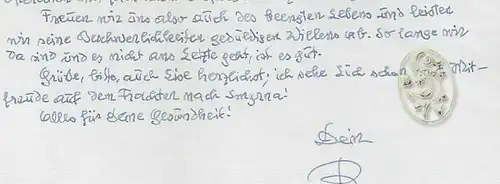 Freuen wir uns also auch des beengten Lebens und leisten
wir seine Beschwerlichkeiten geduldigen Willens ab. So lange wir
da sind und es nicht ans Letzte geht, ist es gut.
Grüße, bitte, auch Lise herzlichst, ich sehe Dich schon mit Mit-
freude auf dem Frachter nach Smyrna!
Alles für Deine Gesundheit!
Dein